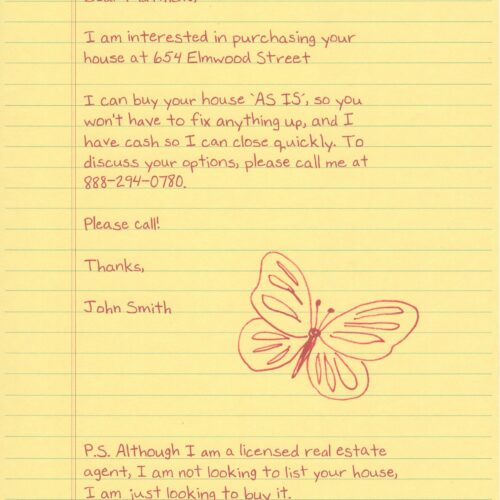 I am interested in purchasing your
house at 654 Elmwood Street
I can buy your house `AS IS´, so you
won't have to fix anything up, and I
have cash so I can close quickly. To
discuss your options, please call me at
888-294-0780.
Please call!
Thanks,
John Smith
P.S. Although I am a licensed real estate
agent, I am not looking to list your house,
I am just looking to buy it.